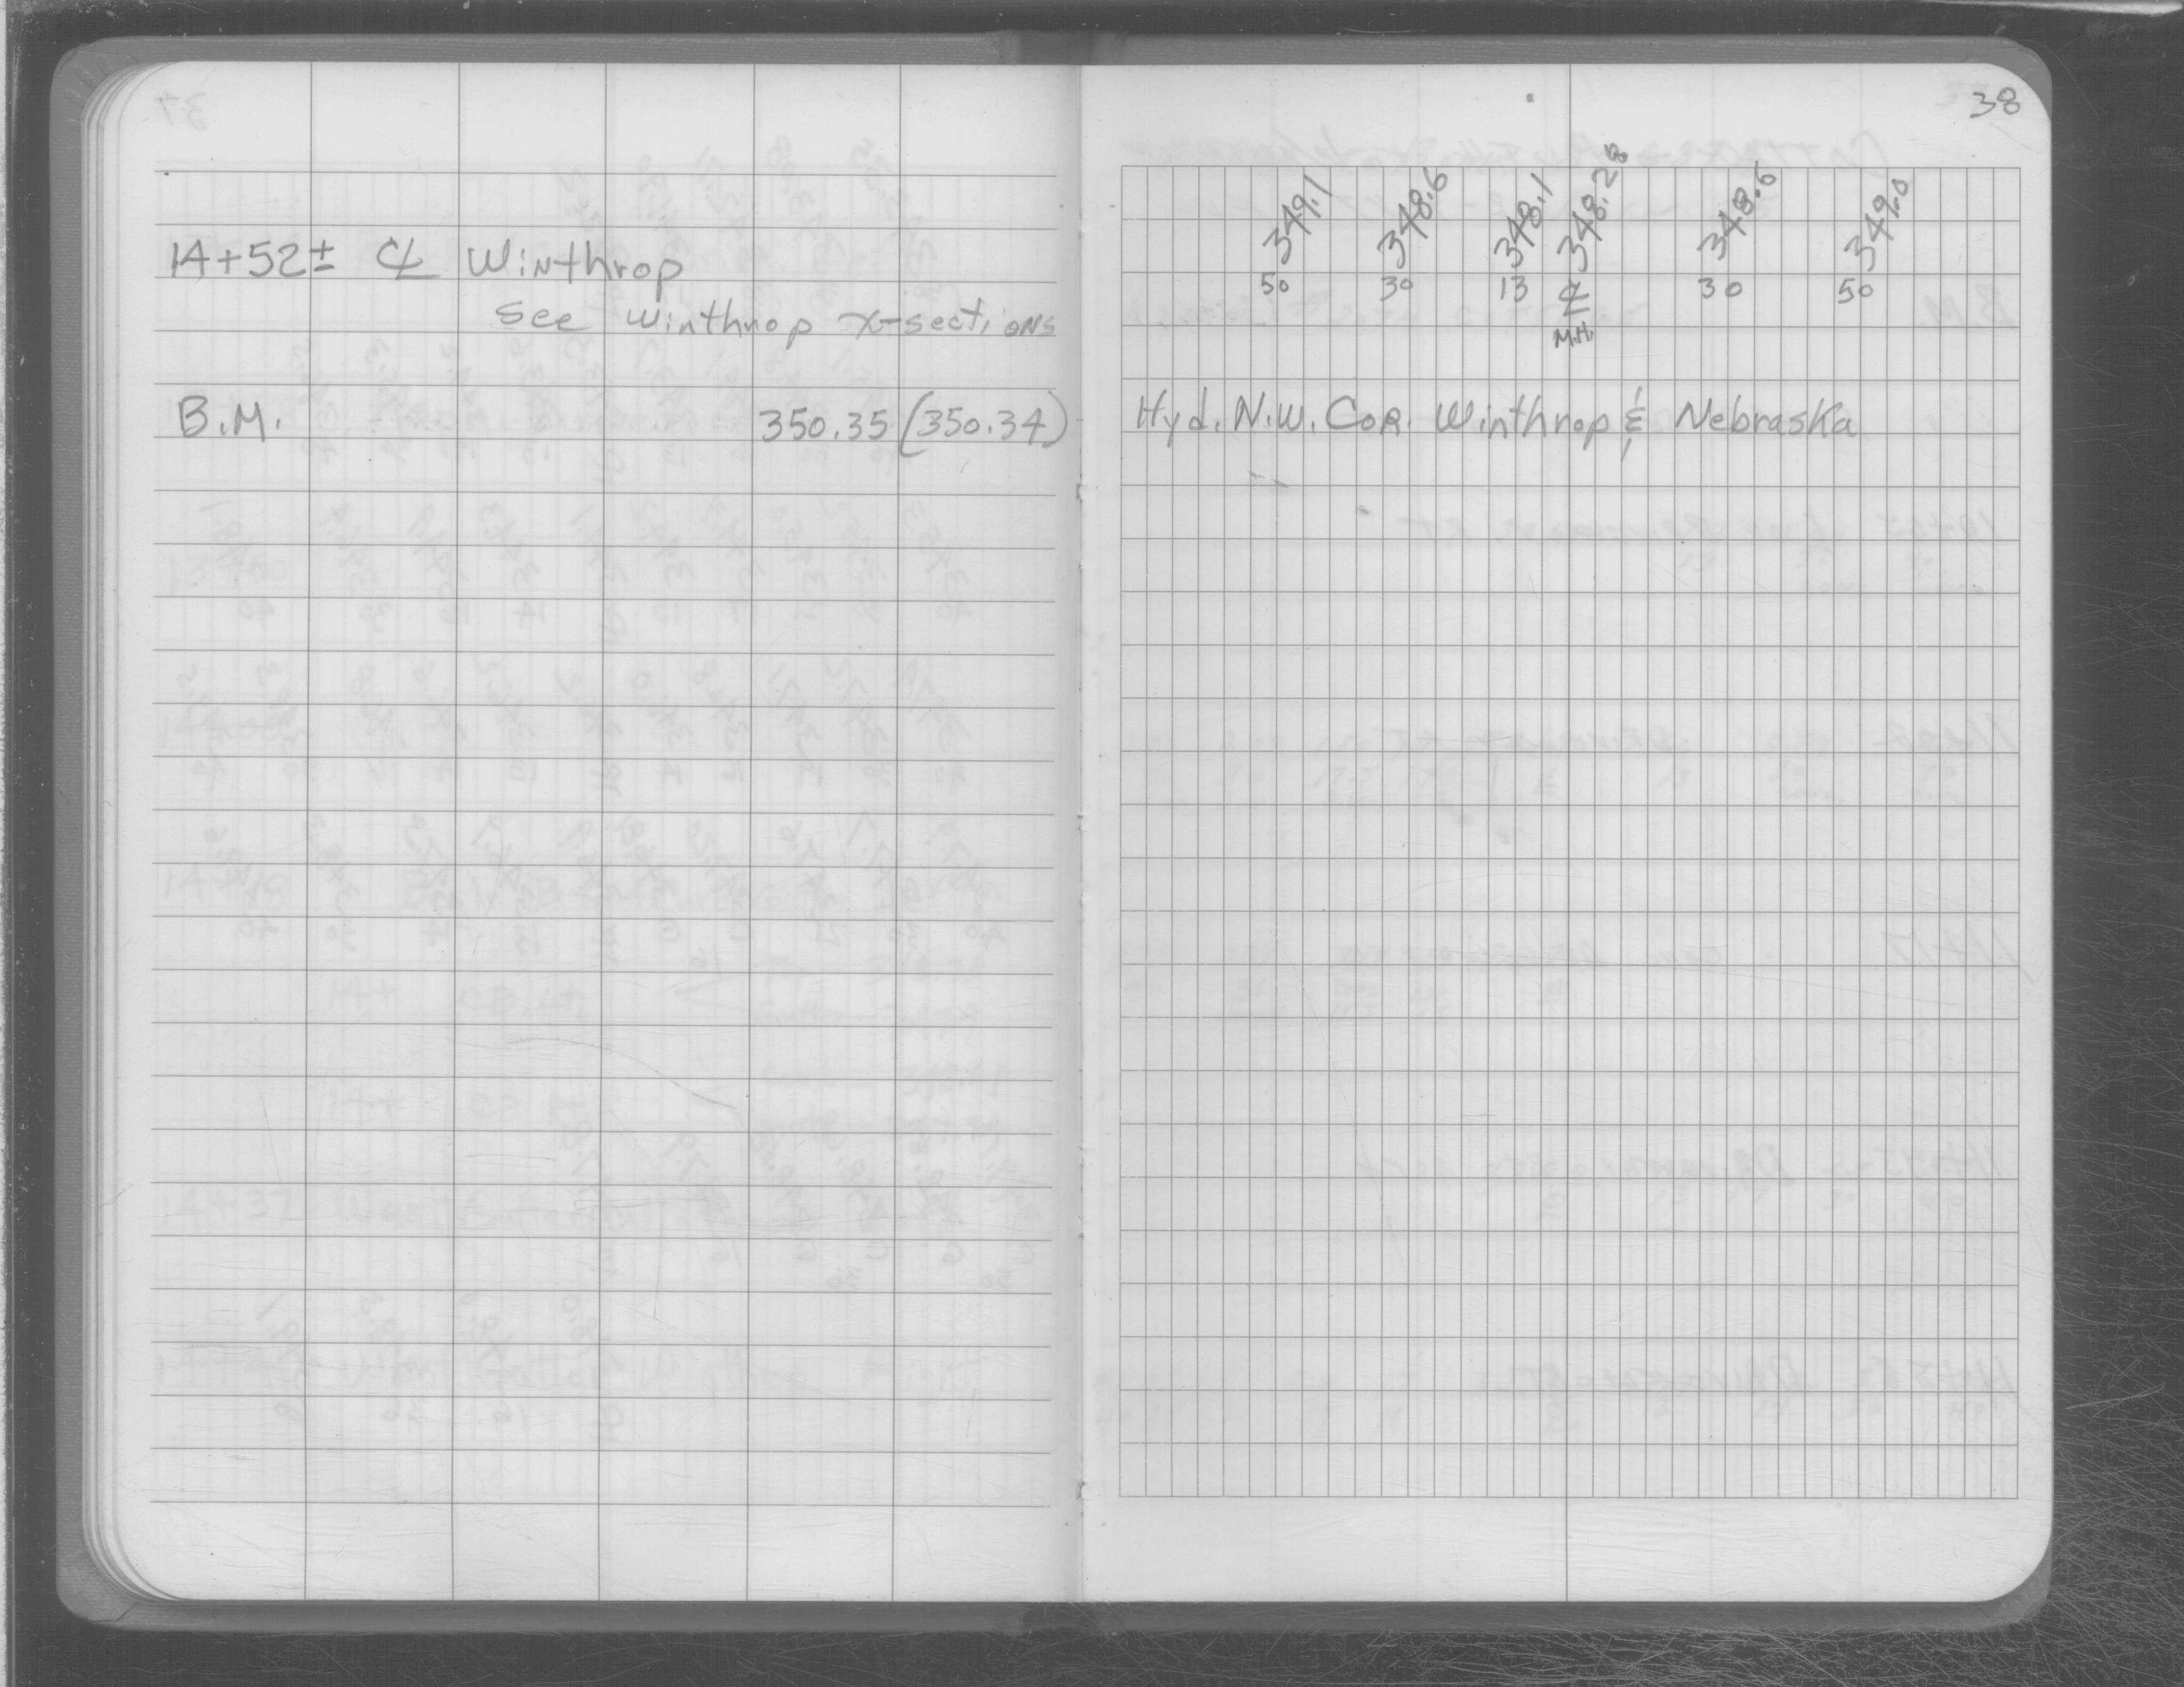 38
14+52± ℄ Winthrop
see Winthrop X-sections
349.1 348.6 348.1 348.28 348.6 349.0
50 30 13 ℄ 30 50
M.H.
B.M. 350.35 (350.34) Hyd. N.W. Cor. Winthrop & Nebraska